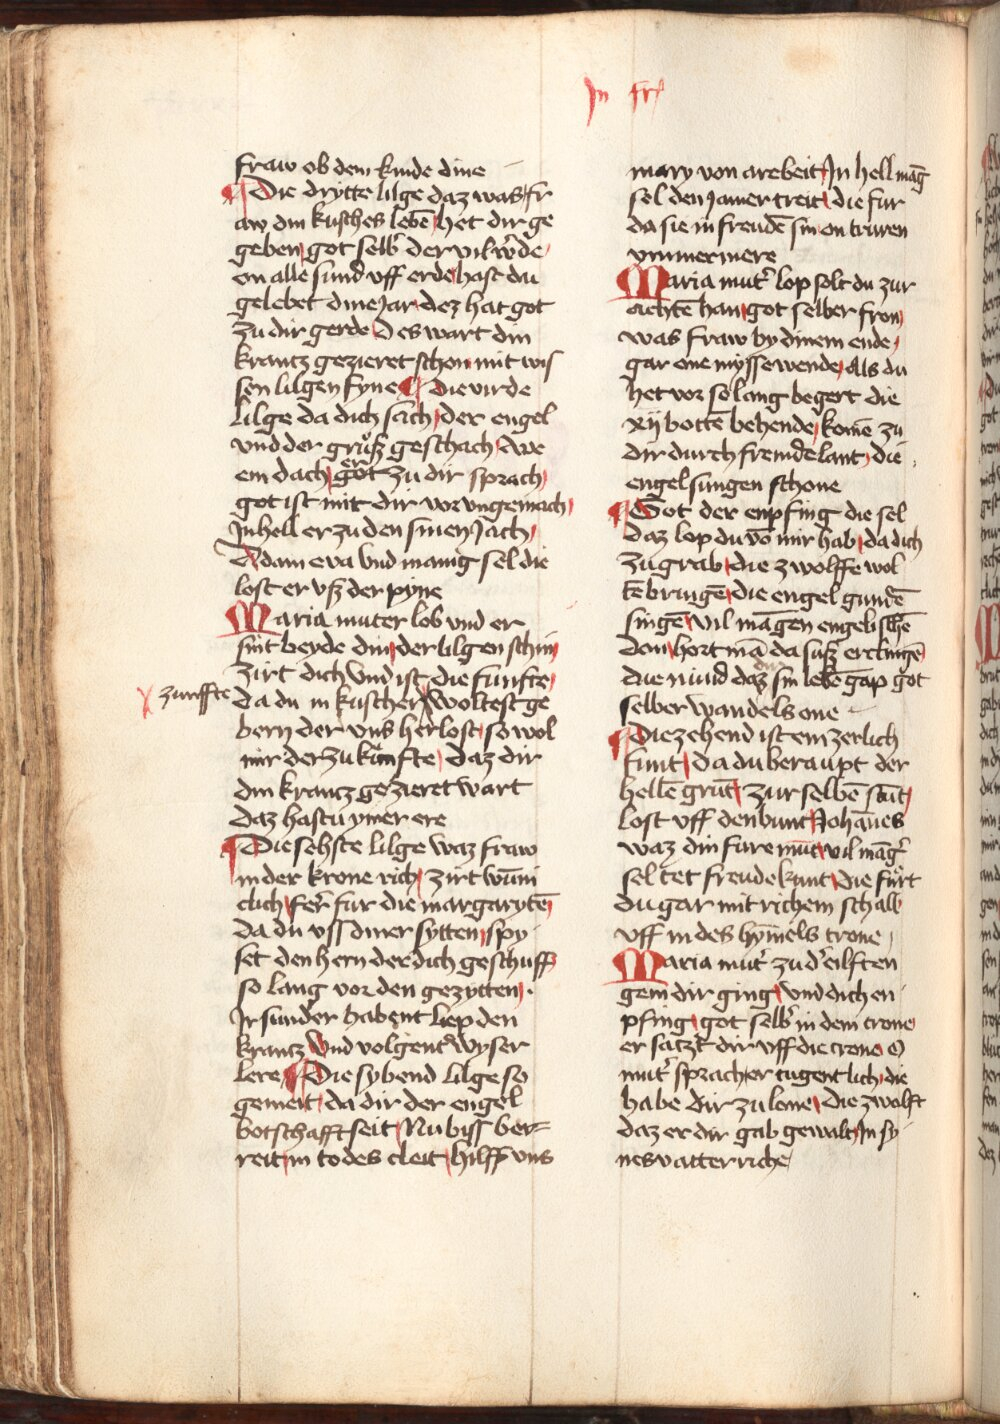 In fr
fraw ob dem kinde dine
Die drytte lilge daz was fr
aw din kusches lebē / het dir ge
geben / got selb' der vil w'de /
on alle sund vff erde / hast du
gelebet dine Jar / dez hat got
zu dir gerde / Des wart din
krantz gezieret schon mit wis
sen lilgen fyne Die virde
lilge da dich sach / der engel
vnd der gruß geschach / Awe
ein dach / got er zu dir sprach /
got ist mit dir vor vngemach /
In hell er zu den sinen Jach /
Adam eva vnd manig sel die
lost er vß der pyne
Maria muter lob vnd er
sint beyde din / der lilgen schin /
zirt dich vnd ist die funfte /
zunffte
da du in kuscher / woltest ge
bern der vns her lost / so wol
mir der zukunfte / Daz dir
din krantz gezieret wart
daz hastu ymer ere
Die sehste lilge waz fraw
in der krone rich / zirt wūni
clich / fer' fur die margarytē /
da du vss diner sytten / spy
set den hern der dich geschuff
so lang vor den gezytten /
Ir sunder habent liep den
krantz vnd volgent wyser
lere / Die sybend lilge so
gemeit / da dir der engel
botschafft seit / Nu biss ber=
reit / in todes cleit / hilff vns
mary von arebeit / In hell māg
sel den Jamer treit / die fur
da sie in freudē sin on truren
ymmermere
Maria mut' lop solt du zur
achtē han / got selber fron /
was fraw by dinem ende /
gar one myssewende / Als du
het vor so lang begert die
xij bottē behende / komē zu
dir durch fremde lant / die
engel sungen schone
Got der enpfing die sel
daz lop du vō mir hab / da dich
zu grab / die zwolffe wol
tē bringē / die engel gundē
singē / vil mangen engelischē
don / hort mā da suß erclingē /
die nund daz din sin lebē gap got
selber wandels one
Die zehend ist ein zerlich
funt / da du beraupt der
hellē grūt / zur selbē stūt /
lost vff den bunt / Johānes
waz din fure mūt / vil māg'
sel tet freude kunt / die fürt
du gar mit richem schall
vff in des hymels trone /
Maria mut' zu d' eilften
gein dir ging / vnd dich en
pfing / got selb' in dem trone
er satzt dir vff die crone O
mut' sprach er tugentlich / die
habe dir zu lone / Die zwolft
daz er dir gab gewalt / In sy
nes vatter riche /